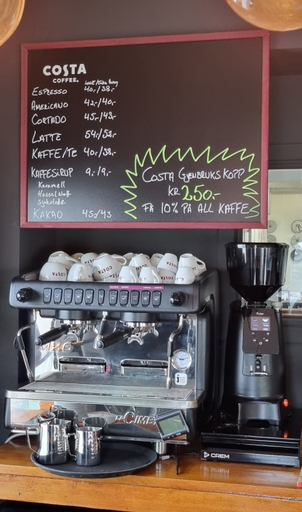 COSTA
COFFEE
ESPRESSO 40,-/38,-
AMERICANO 42,-/40,-
CORTADO 45,-/43,-
LATTE
KAFFE/TE 40,-/38,-
KAFFESIRUP 9,-/9,-
Karamell
Sjokolade
KAKAO 45/43
COSTA GJENBRUKS KOPP
KR 250,-
FÅ 10% PÅ ALL KAFFE
COSTA
LA CIMBALI
CREM